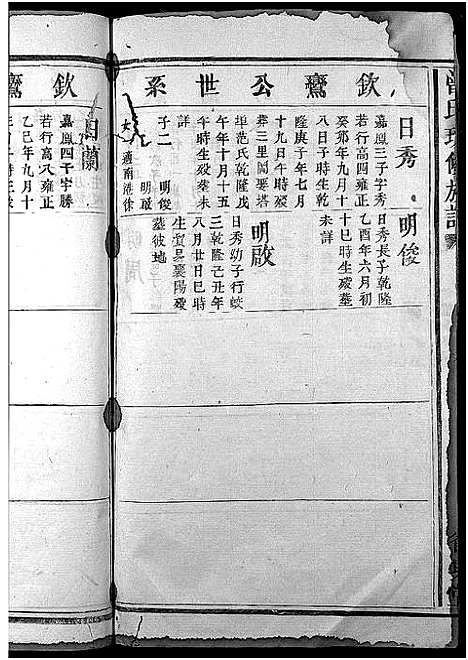 曾氏
族譜
欽鸞公世系
日秀
嘉鳳三子字秀
若行高四雍正
癸夘年九月十
八日子時生乾
隆庚子年七月
十九日午時歿
葬三里岡婁塔
氏乾隆戊
午年十月十五
午時生歿葬未
詳
子二 明俊
明啟
女 適南港徐
明俊
日秀長子乾隆
乙酉年六月初
十巳時生歿葬
未詳
明啟
日秀幼子行蛟
三乾隆己丑年
八月廿日巳時
生貿易襄陽歿
葬彼地
欽鸞
蘭
嘉鳳四子字勝
若行高六雍正
乙巳年九月十